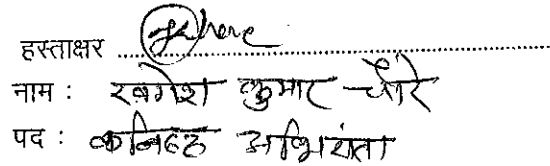 हस्ताक्षर
नाम : खगेश कुमार चौरे
पद : कनिष्ठ अभियंता